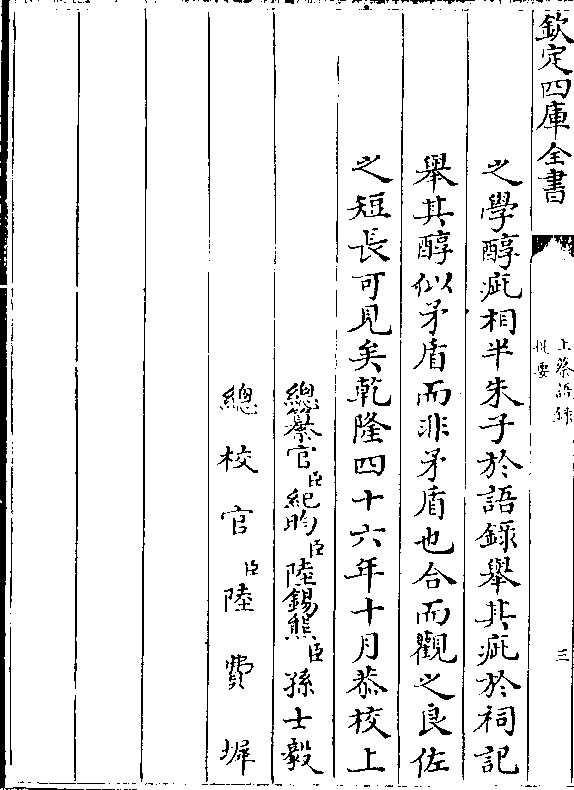 欽定四庫全書
上蔡語錄
提要
三
之學醇疵相半朱子於語錄舉其疵於祠記
舉其醇似矛盾而非矛盾也合而觀之良佐
之短長可見矣乾隆四十六年十月恭校上
總纂官臣紀昀臣陸錫熊臣孫士毅
總校官臣陸費墀